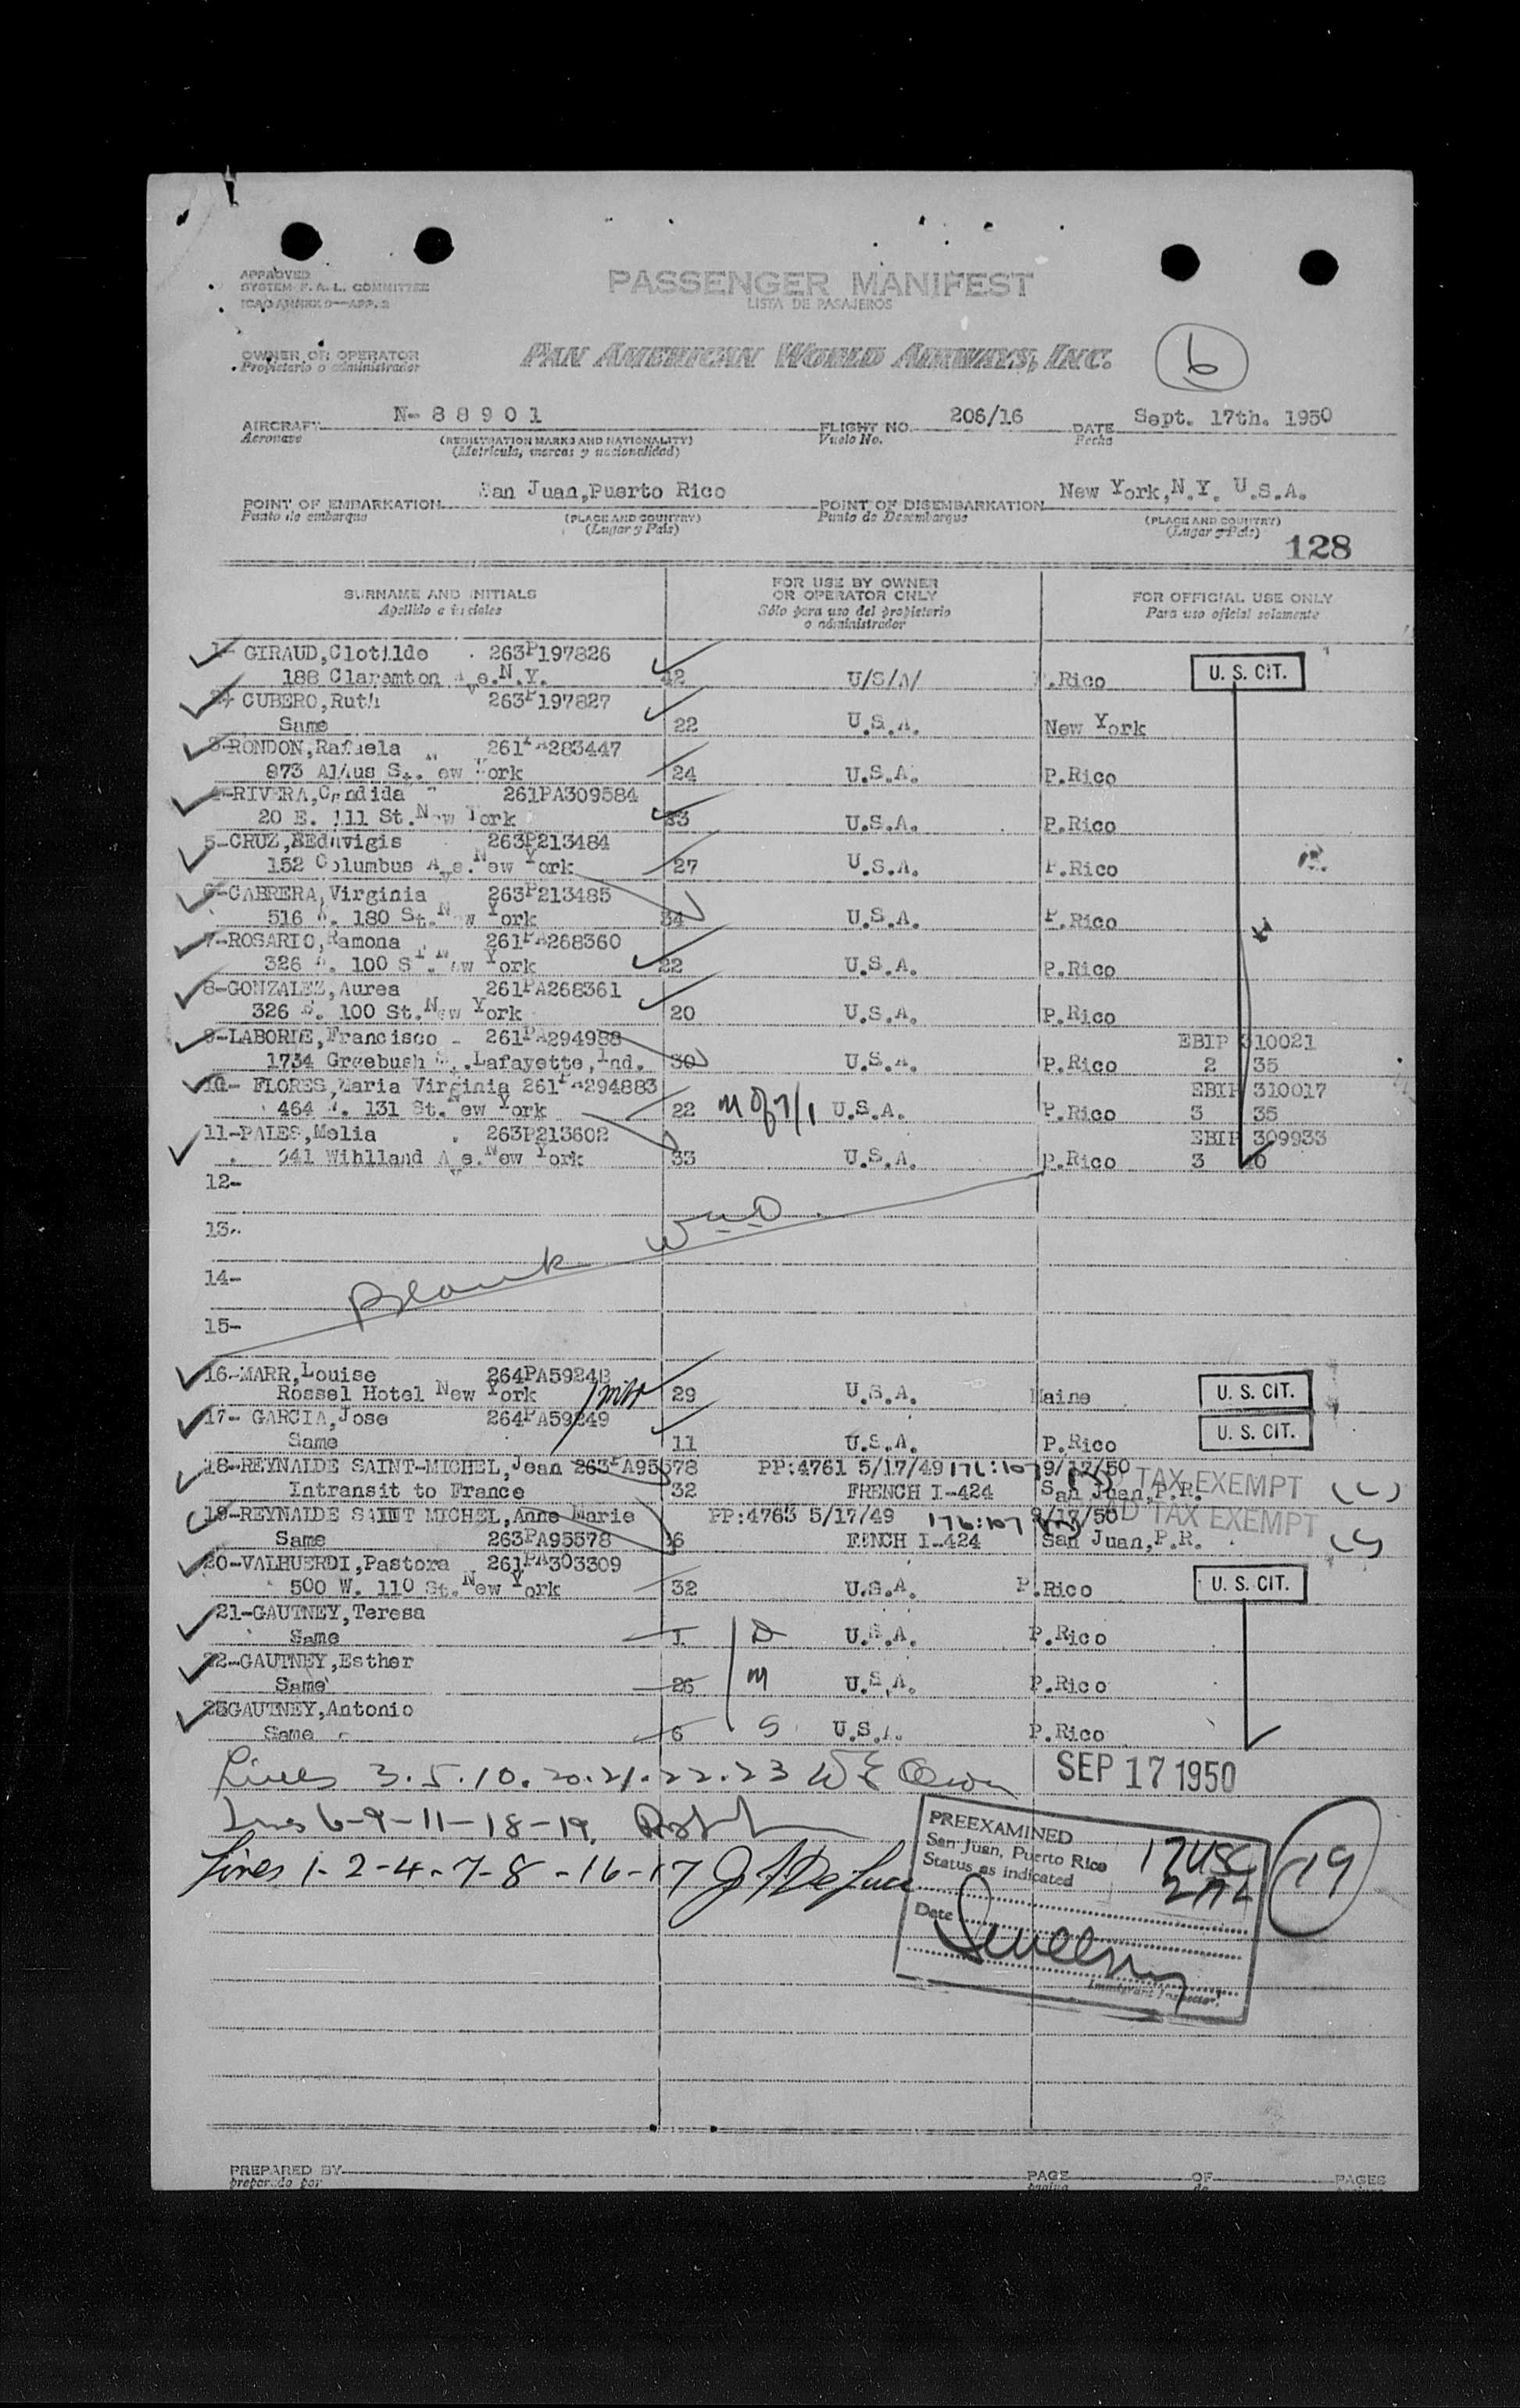 APPROVED
SYSTEM F.A.L. COMMITTEE
PASSENGER MANIFEST
LISTA DE PASAJEROS
OWNER OR OPERATOR
Propietario o administrador
PAN AMERICAN WORLD AIRWAYS, INC.
6
AIRCRAFT N-88901 FLIGHT NO. 206/16 DATE Sept. 17th. 1950
Aeronave (REGISTRATION MARKS AND NATIONALITY) Vuelo No. Fecha
(Matricula, marcas y nacionalidad)
POINT OF EMBARKATION San Juan,Puerto Rico POINT OF DISEMBARKATION New York,N.Y. U.S.A.
Punto de embarque (PLACE AND COUNTRY) Punto de Desembarque (PLACE AND COUNTRY)
(Lugar y Pais) (Lugar y Pais)
128
SURNAME AND INITIALS FOR USE BY OWNER OR OPERATOR ONLY FOR OFFICIAL USE ONLY
Apellido e iniciales Sólo para uso del propietario o administrador Para uso oficial solamente
1- GIRAUD,Clotilde 263P197826
188 Claremton Ave.N.Y. 42 U/S/A/ P.Rico U. S. CIT.
CUBERO,Ruth 263P197827
Same 22 U.S.A. New York
3-RONDON,Rafaela 261PA283447
873 St. New York 24 U.S.A. P.Rico
4-RIVERA,Candida 261PA309584
20 E. 111 St.New York 33 U.S.A. P.Rico
5-CRUZ, 263P213484
152 Columbus Ave.New York 27 U.S.A. P.Rico
6-CABRERA,Virginia 263P213485
516 W. 180 St.New York 34 U.S.A. P.Rico
7-ROSARIO,Ramona 261PA268360
326 100 St. New York 22 U.S.A. P.Rico
8-GONZALEZ,Aurea 261PA268361
326 100 St.New York 20 U.S.A. P.Rico
9-LABORIE,Francisco 261PA294988 EBIP 310021
1734 Greebush .Lafayette,Ind. 30 U.S.A. P.Rico 2 35
10- FLORES,Maria Virginia 261PA294883 EBIP 310017
464 W. 131 St.New York 22 U.S.A. P.Rico 3 35
11-PALES,Melia 263P213602 EBIP 309933
941 Wihlland Ave.New York 33 U.S.A. P.Rico 3
12-
13-
Blank
14-
15-
16-MARR,Louise 264PA59248
Rossel Hotel New York 29 U.S.A. Maine U. S. CIT.
17- GARCIA,Jose 264PA59249
Same 11 U.S.A. P.Rico U. S. CIT.
18-REYNALDE SAINT-MICHEL,Jean 263PA95578 PP:4761 5/17/49 176:107 9/17/50
Intransit to France 32 FRENCH I-424 San Juan,P.R. TAX EXEMPT
19-REYNALDE SAINT MICHEL,Anne Marie PP:4763 5/17/49 176:107 9/17/50
Same 263PA95578 FENCH I-424 San Juan,P.R. TAX EXEMPT
20-VALHUERDI,Pastora 261PA303309
500 W. 110 St.New York 32 U.S.A. P.Rico U. S. CIT.
21-GAUTNEY,Teresa
Same 1 D U.S.A. P.Rico
22-GAUTNEY,Esther
Same 26 M U.S.A. P.Rico
23GAUTNEY,Antonio
Same 6 S U.S.A. P.Rico
Lines 3.5.10.20.21.22.23
SEP 17 1950
Lines 6-9-11-18-19
Lines 1-2-4-7-8-16-17
PREEXAMINED
San Juan, Puerto Rico
Status as indicated
17USC
19
Date
Immigrant Inspector
PREPARED BY PAGE OF PAGES
preparado por pagina de